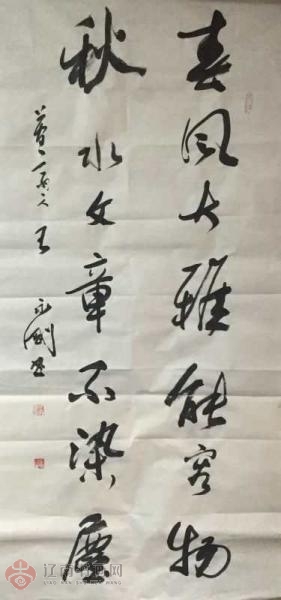 春风大雅能容物
秋水文章不染尘
王
辽南书画网